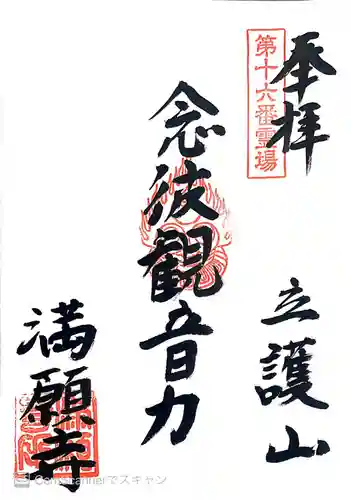 奉拝
第十六番霊場
立護山
念彼観音力
満願寺
CamScannerでスキャン